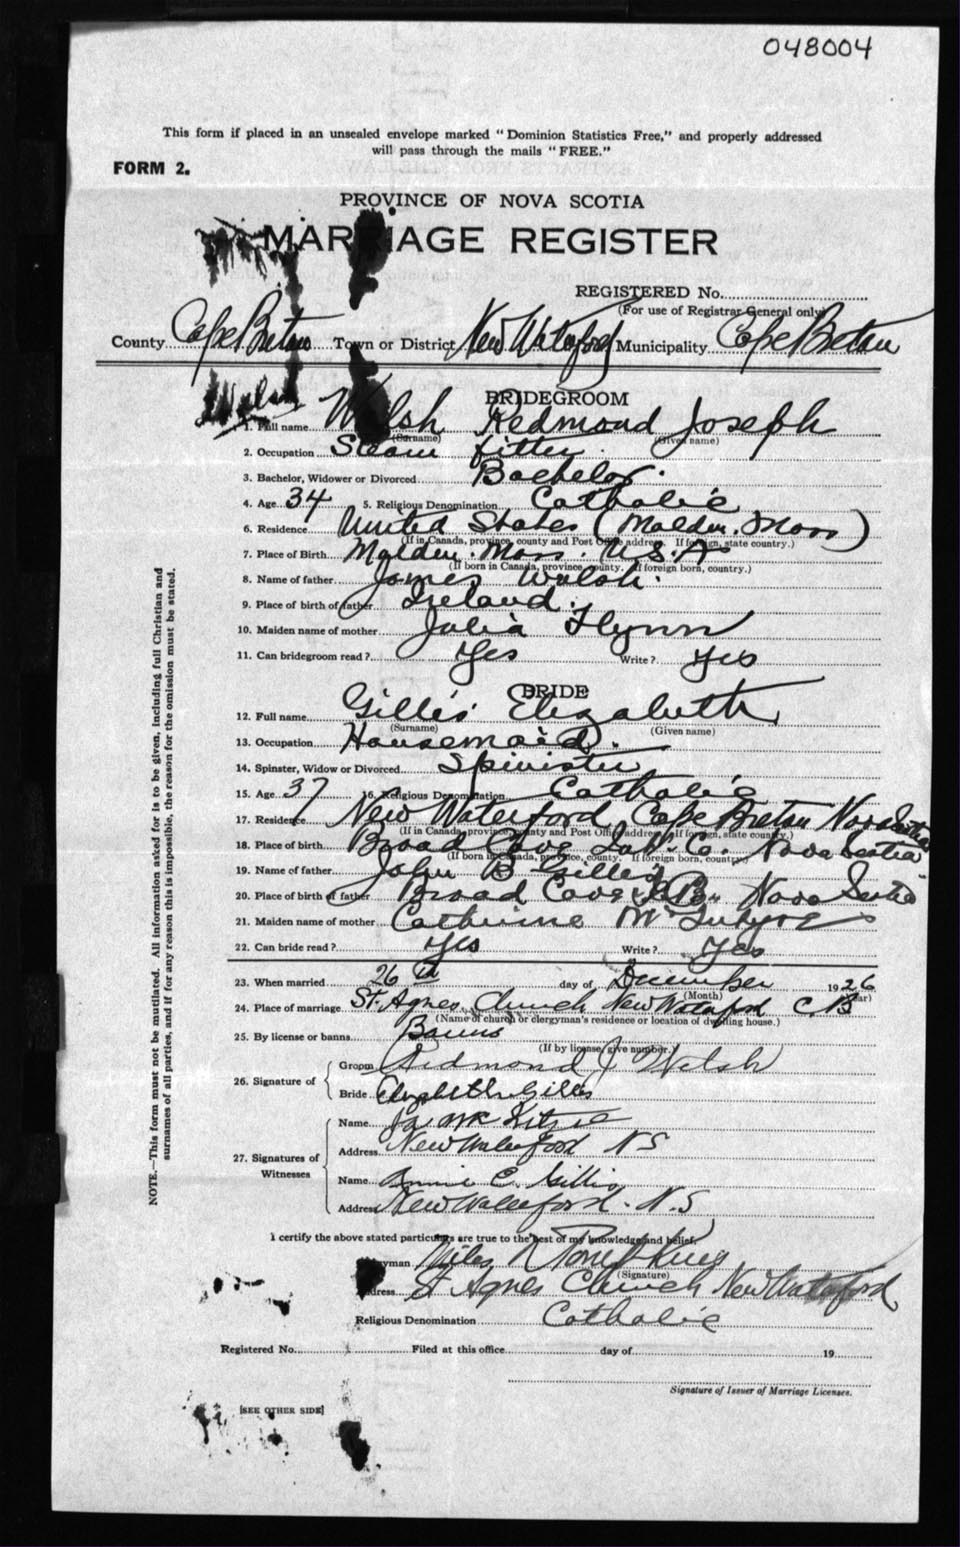 048004
This form if placed in an unsealed envelope marked "Dominion Statistics Free," and properly addressed
will pass through the mails "FREE."
FORM 2.
PROVINCE OF NOVA SCOTIA
MARRIAGE REGISTER
REGISTERED No.
(For use of Registrar General only)
County Cape Breton Town or District New Waterford Municipality Cape Breton
Welsh
BRIDEGROOM
1. Full name Walsh Redmond Joseph
(Surname) (Given name)
2. Occupation Steam fitter
3. Bachelor, Widower or Divorced Bachelor.
4. Age 34 5. Religious Denomination Catholic
6. Residence United States (Malden. Mass)
(If in Canada, province, county and Post Office address. If foreign, state country.)
7. Place of Birth Malden. Mass. U.S.A
(If born in Canada, province, county. If foreign born, country.)
8. Name of father James Walsh.
9. Place of birth of father Ireland.
10. Maiden name of mother Julia Flynn
11. Can bridegroom read? Yes Write? Yes
BRIDE
12. Full name Gillis Elizabeth
(Surname) (Given name)
13. Occupation Housemaid.
14. Spinster, Widow or Divorced Spinister
15. Age 37 16. Religious Denomination Catholic
17. Residence New Waterford Cape Breton Nova Scotia
(If in Canada, province, county and Post Office address. If foreign, state country.)
18. Place of birth Broad Cove Co. Nova Scotia
(If born in Canada, province, county. If foreign born, country)
19. Name of father John B Gillis
20. Place of birth of father Broad Cove C.B. Nova Scotia
21. Maiden name of mother Catherine
22. Can bride read? Yes Write? Yes
23. When married 26th day of December 1926
(Month) (Year)
24. Place of marriage St. Agnes Church New Waterford C.B
(Name of church or clergyman's residence or location of dwelling house.)
25. By license or banns Banns
(If by license, give number.)
26. Signature of Groom Redmond J Welsh
Bride Elizabeth Gillis
27. Signatures of Witnesses
Name
Address New Waterford N S
Name Annie C. Gillis
Address New Waterford. N.S
I certify the above stated particulars are true to the best of my knowledge and belief.
Clergyman Miles
(Signature)
Address St Agnes Church New Waterford
Religious Denomination Catholic
Registered No. Filed at this office day of 19
Signature of Issuer of Marriage Licenses.
[SEE OTHER SIDE]
NOTE.—This form must not be mutilated. All information asked for is to be given, including full Christian and
surnames of all parties, and if for any reason this is impossible, the reason for the omission must be stated.